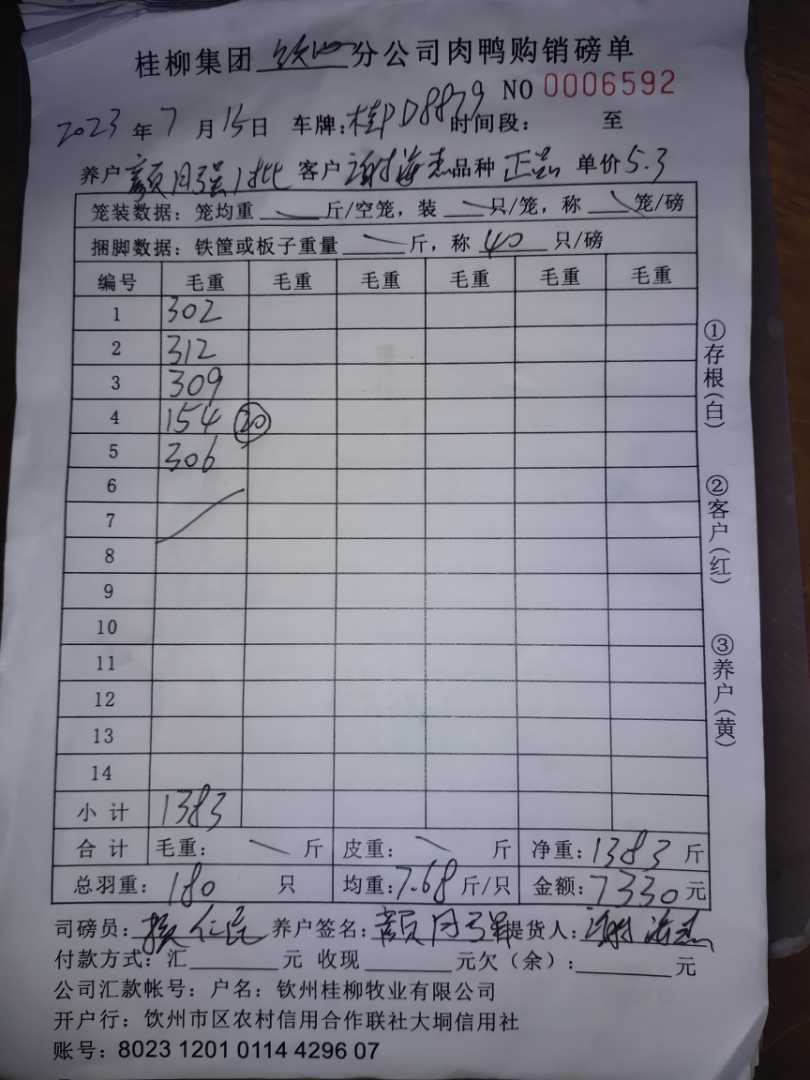 桂柳集团 钦州 分公司肉鸭购销磅单
NO 0006592
2023 年 7 月 15 日 车牌: 桂PD8879 时间段: 至
养户 颜月强1批 客户 谢海杰 品种 正品 单价 5.3
笼装数据: 笼均重 斤/空笼, 装 只/笼, 称 笼/磅
捆脚数据: 铁筐或板子重量 斤, 称 40 只/磅
编号 毛重 毛重 毛重 毛重 毛重 毛重
1 302
2 312
3 309
4 154 20
5 306
6
7
8
9
10
11
12
13
14
小计 1383
合计 毛重: 斤 皮重: 斤 净重: 1383 斤
总羽重: 180 只 均重: 7.68 斤/只 金额: 7330 元
司磅员: 养户签名: 颜月强 提货人: 谢海杰
付款方式: 汇 元 收现 元欠(余): 元
公司汇款帐号: 户名: 钦州桂柳牧业有限公司
开户行: 钦州市区农村信用合作联社大垌信用社
账号: 8023 1201 0114 4296 07
①存根(白)
②客户(红)
③养户(黄)